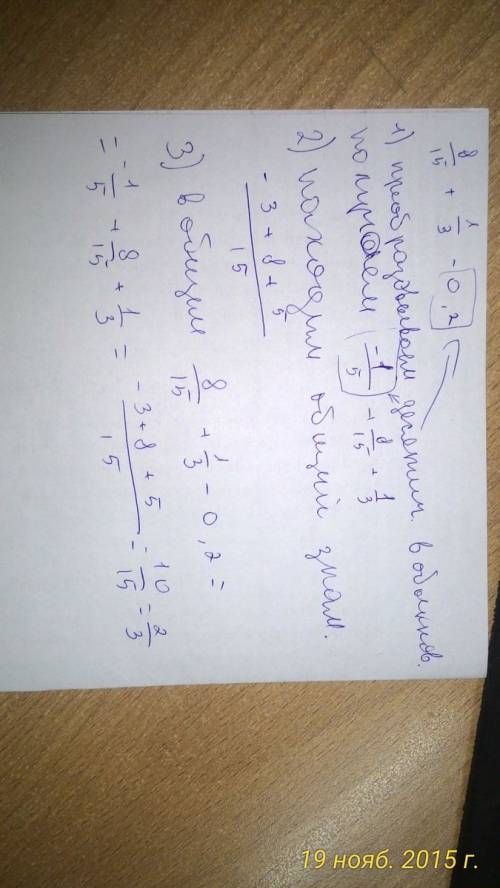 8/15 + 1/3 - 0,2
1) преобразовываем десятич. в обыкнов.
получаем (-1/5) + 8/15 + 1/3
2) находим общий знам.
-3 + 8 + 5 / 15
3) в общем 8/15 + 1/3 - 0,2 =
= -1/5 + 8/15 + 1/3 = -3+8+5 / 15 = 10/15 = 2/3
19 нояб. 2015 г.